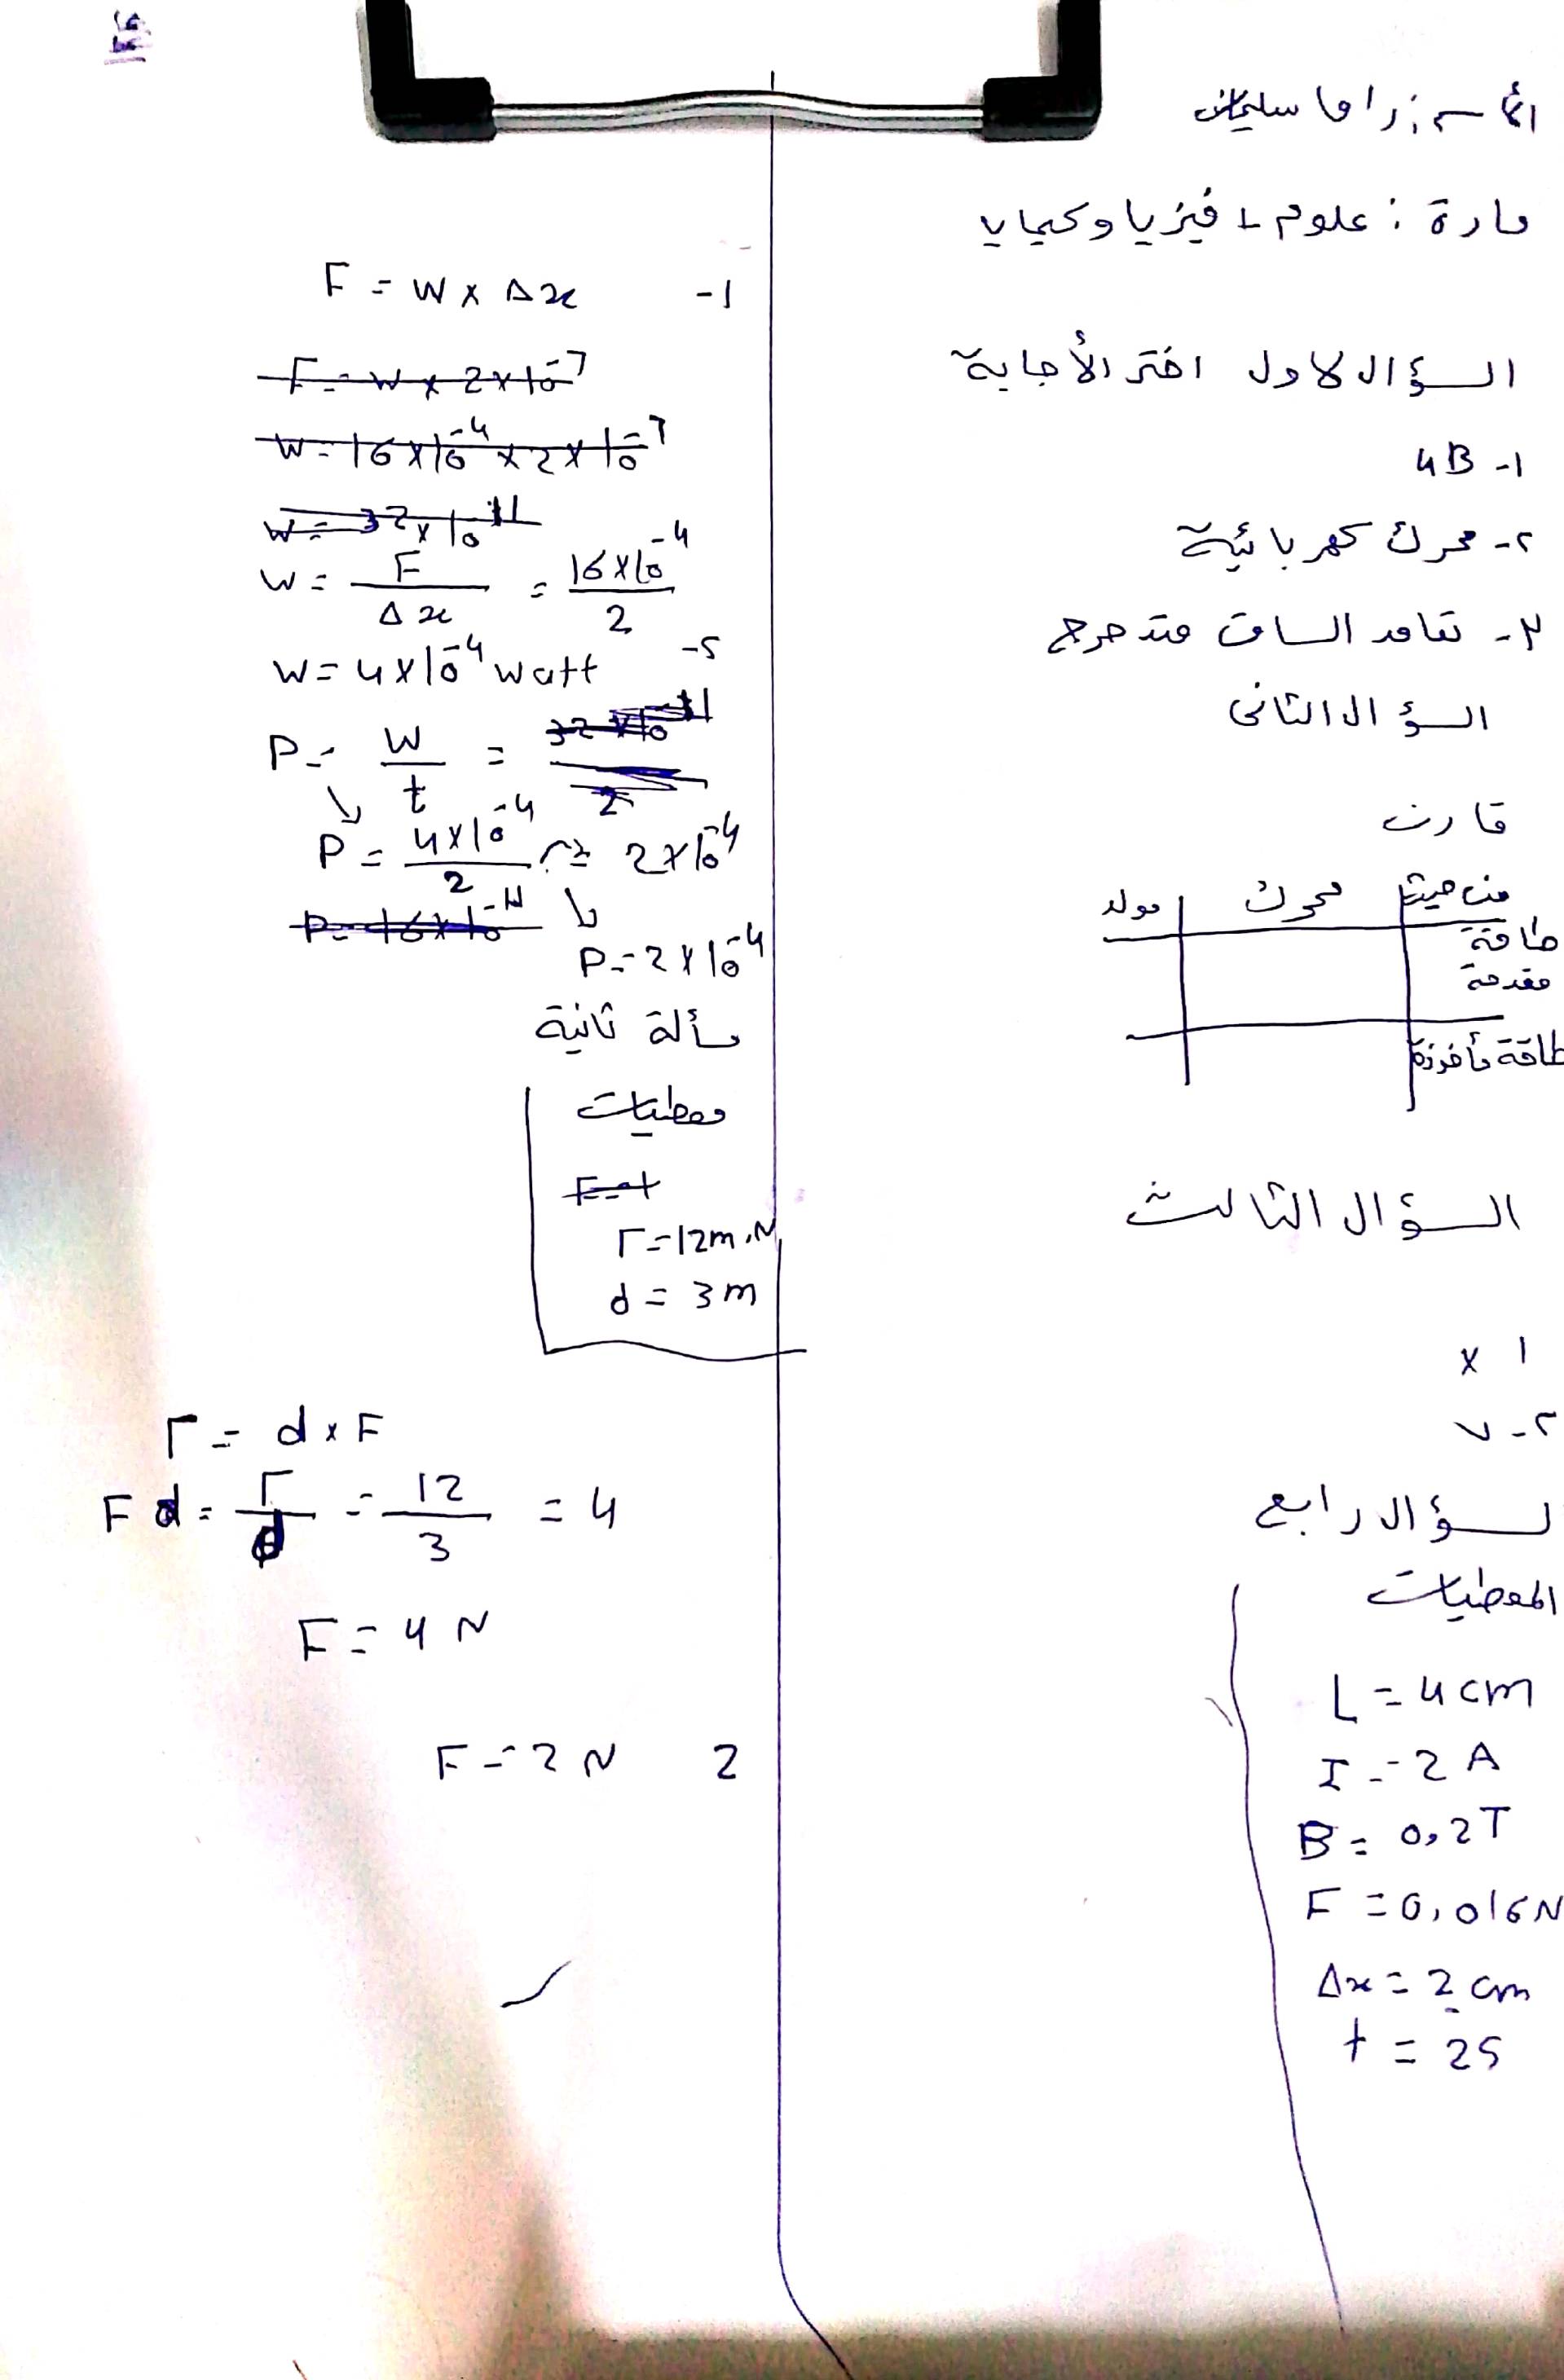 الأسم: راما سليمان
مادة : علوم + فيزيا وكيميا
السؤال الاول اختر الأجابة
1- 4B
٢- محرك كهربائية
٣- تعامد الساق متدحرج
السؤال الثاني
قارن
من حيث محرك مولد
طاقة
مقدمة
طاقة مأخوذة
السؤال الثالث
1 x
٢- ✓
لسؤال رابع
المعطيات
L = 4 cm
I = 2 A
B = 0,2 T
F = 0,016 N
Δx = 2 cm
t = 2 S
1- F = W x Δx
F = W x 2x10⁻⁷
W = 16x10⁻⁴ x 2x10⁻⁷
W = 32x10⁻¹¹
W = F/Δx = 16x10⁻⁴/2
W = 4x10⁻⁴ watt
٢-
P = W/t = 32x10⁻¹¹/2
P = 4x10⁻⁴/2 = 2x10⁻⁴
P = 2x10⁻⁴
مسألة ثانية
معطيات
Γ = 12 m.N
d = 3 m
Γ = d x F
F d = Γ/d = 12/3 = 4
F = 4 N
2 F = 2 N